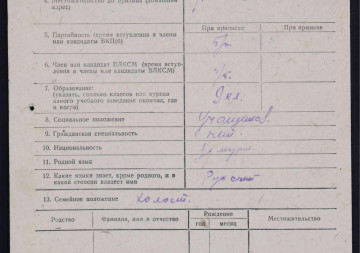 При призыве
5. Партийность (время вступления в члены
или кандидаты ВКП(б)
б/п
6. Член или кандидат ВЛКСМ (время всту-
пления в члены или кандидаты ВЛКСМ)
7. Образование:
(указать, сколько классов или курсов
какого учебного заведения окончил, где
и когда)
9 кл.
8. Социальное положение
9. Гражданская специальность
нет
10. Национальность
11. Родной язык
12. Какие языки знает, кроме родного, и в
какой степени владеет ими
Русский
13. Семейное положение Холост.
Родство
Фамилия, имя и отчество
Рождение
год
месяц
Местожительство